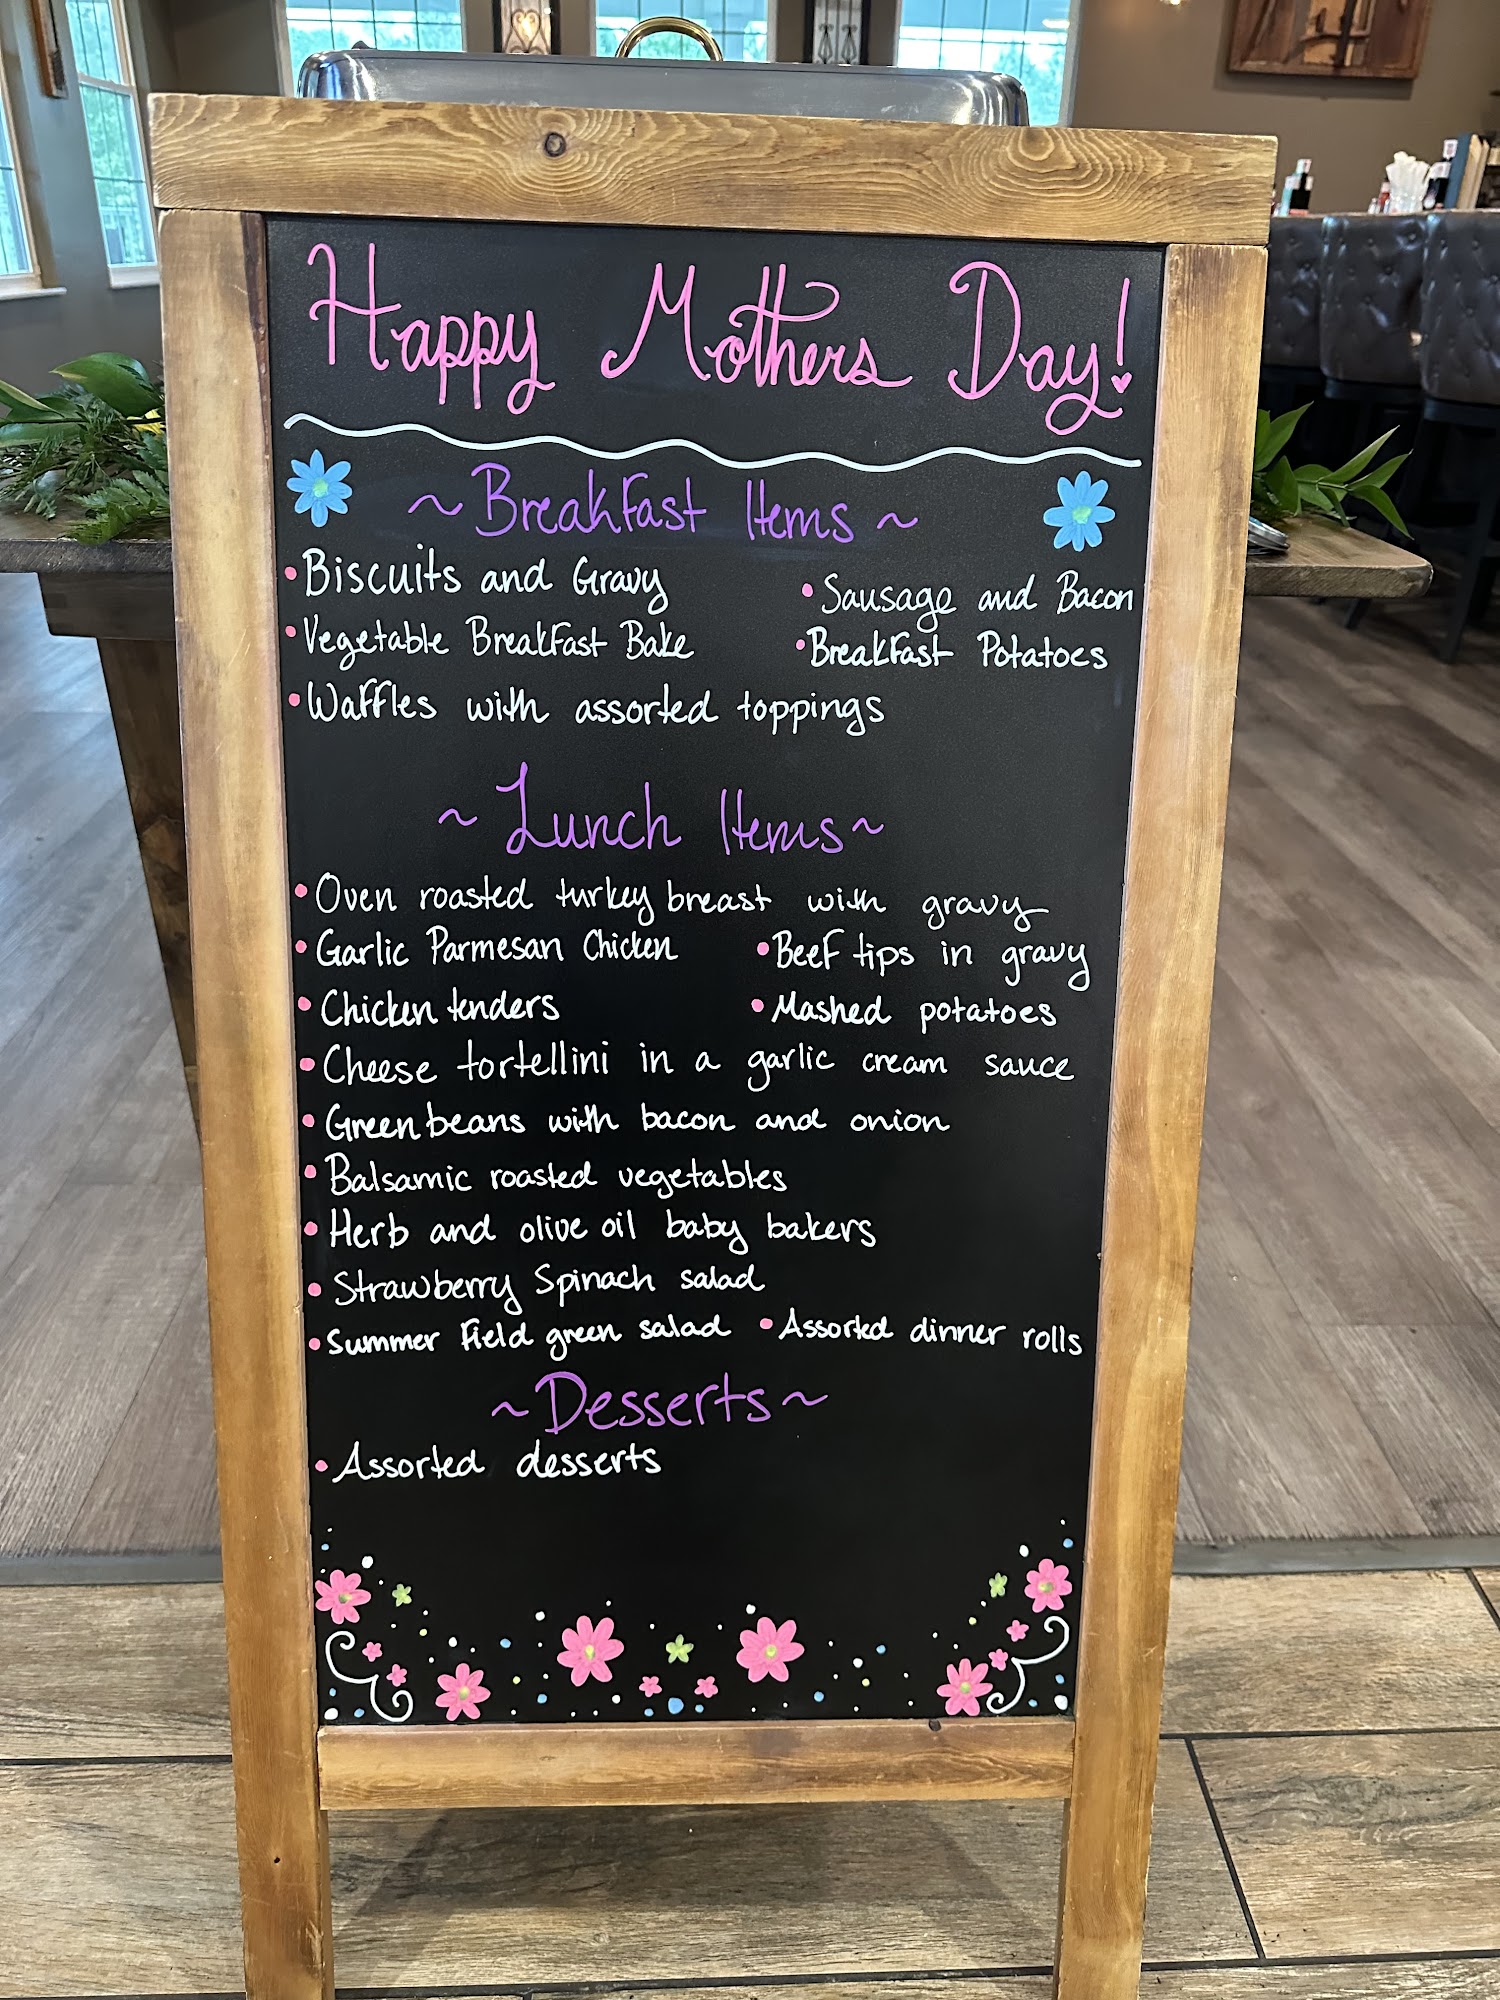 Happy Mothers Day!
~Breakfast Items~
•Biscuits and Gravy •Sausage and Bacon
•Vegetable Breakfast Bake •Breakfast Potatoes
•Waffles with assorted toppings
~Lunch Items~
•Oven roasted turkey breast with gravy
•Garlic Parmesan Chicken •Beef tips in gravy
•Chicken tenders •Mashed potatoes
•Cheese tortellini in a garlic cream sauce
•Green beans with bacon and onion
•Balsamic roasted vegetables
•Herb and olive oil baby bakers
•Strawberry Spinach salad
•Summer Field green salad •Assorted dinner rolls
~Desserts~
•Assorted desserts